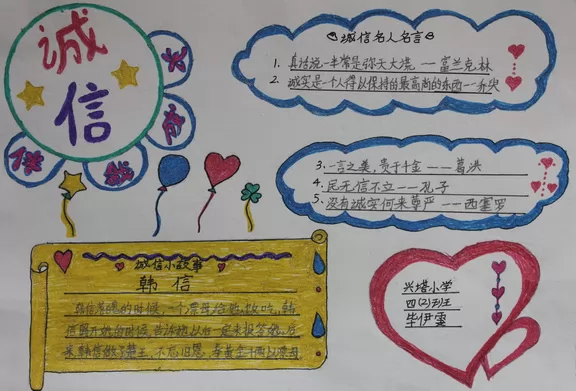 诚信
伴
我
成
长
诚信名人名言
1. 真话说一半常是弥天大谎——富兰克林
2. 诚实是一个人得以保持的最高尚的东西——乔叟
3. 一言之美,贵于千金——葛洪
4. 民无信不立——孔子
5. 没有诚实何来尊严——西塞罗
诚信小故事
韩信
韩信
的时候,一个漂母给他饭吃,韩
信离开她的时候,告诉她以后一定来报答她,后
来韩信做了楚王,不忘旧恩,奉黄金千两以
兴塔小学
四(2)班
毕伊雯